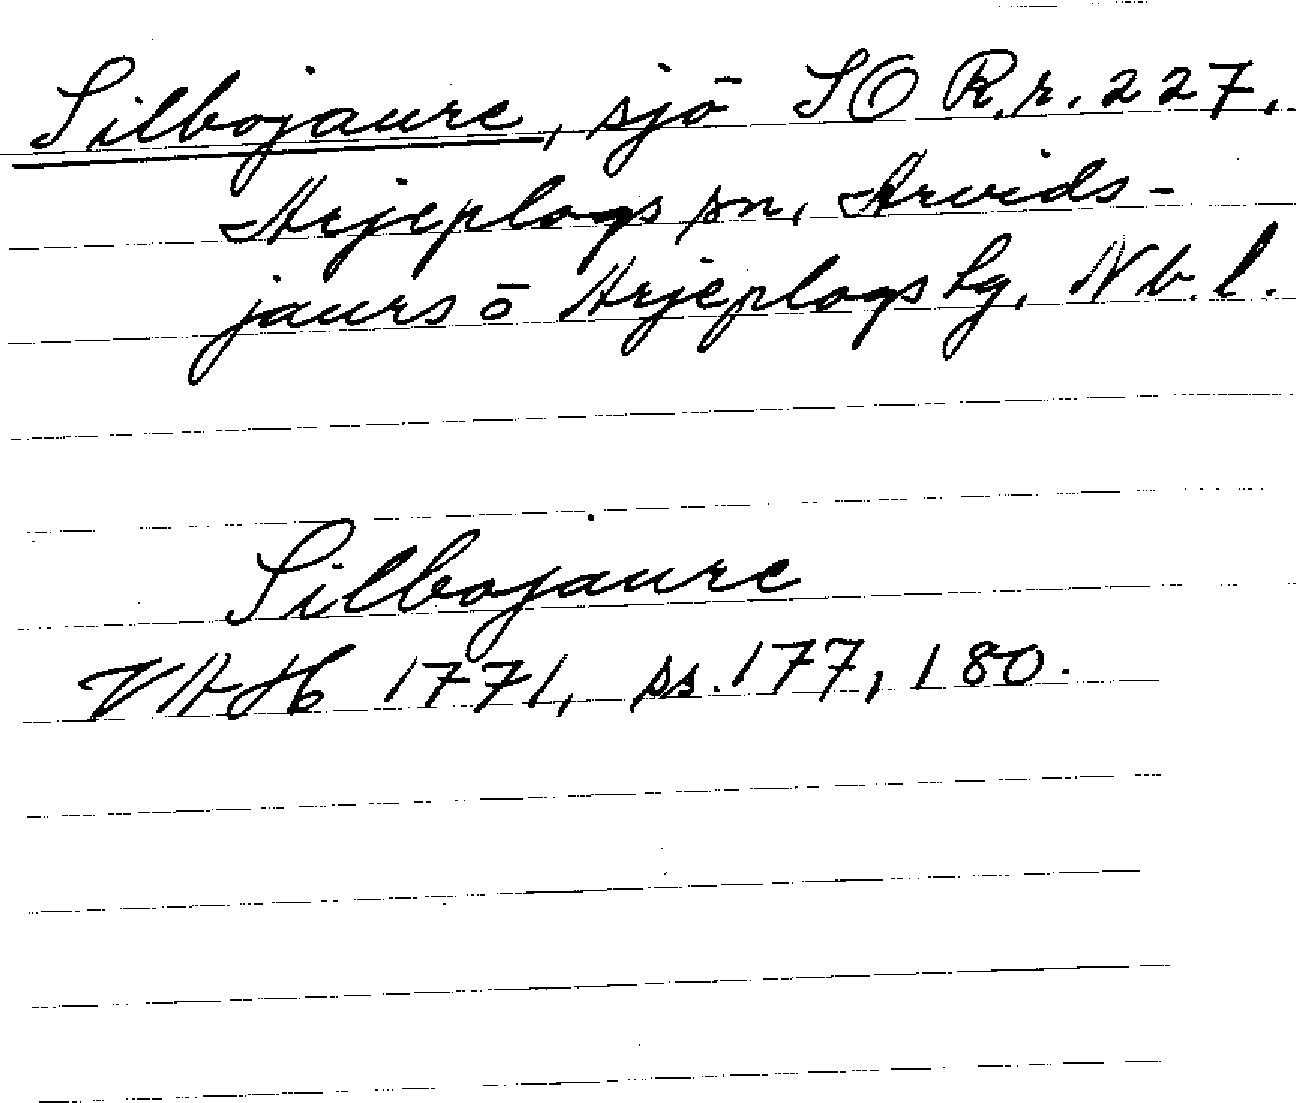 Silbojaure, sjö SO R.r. 227.
Arjeplogs sn, Arvids-
jaurs o Arjeplogs lg, Nb. l.
Silbojaure
VAH 1771, ss. 177, 180.